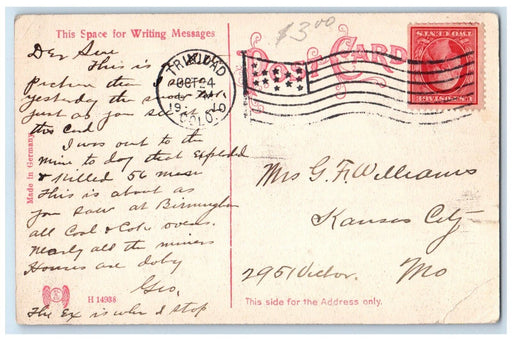 This Space for Writing Messages
$3.00
POST CARD
TRINIDAD
OCT 24
1910
COLO.
U.S. POSTAGE
TWO CENTS
This is
picture
yesterday the
just as you see
this Card
I was out to the
mine to day that Exploded
& Killed 56 men
This is about as
you saw at Birmingham
all Coal & Coke ovens.
nearly all the miners
Houses are doby
Geo.
The Ex is where I stop
Made in Germany
H 14938
Mrs G. F. Williams
Kansas City
2951 Victor. Mo
This side for the Address only.